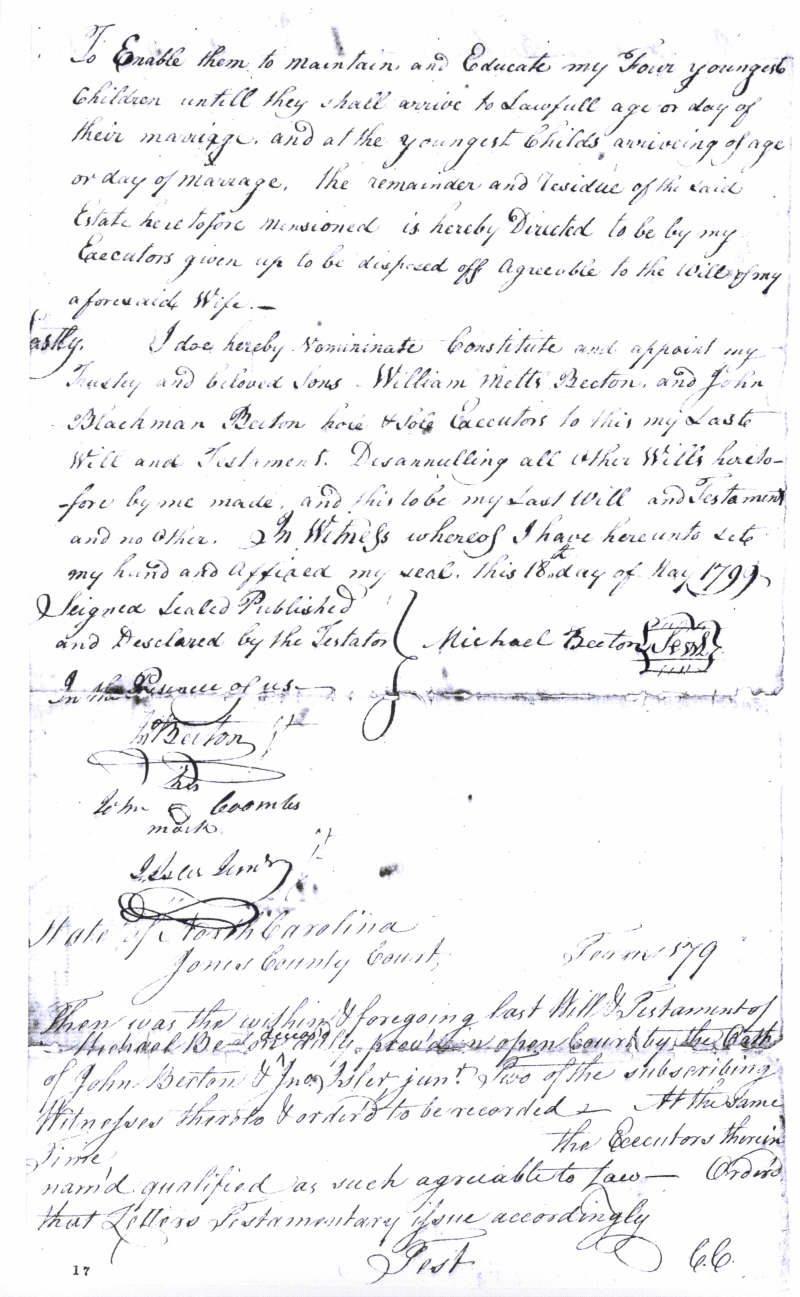 To Enable them to maintain and Educate my Four youngest
Children untill they shall arrive to Lawfull age or day of
their marrige. and at the youngest Childs arriveing of age
or day of marrage, the remainder and residue of the said
Estate heretofore mensioned is hereby Directed to be by my
Executors given up to be disposed off Agreeable to the Will of my
aforesaid Wife.—
Lastly. I doe hereby Nomininate Constitute and appoint my
Trusty and beloved Sons William Metts Beeton, and John
Blackman Beeton hole & Sole Executors to this my Last
Will and Testament. Desannulling all other Wills hereto-
-fore by me made, and this to be my Last Will and Testament
and no Other. In Witness whereof I have hereunto Set
my hand and Affixed my seal. this 18th day of May 1799
Seigned Sealed Published
and Desclared by the Testator Michael Beeton Seal
In the Presence of us—
Jno Beeton
his
John Coombs
mark
Isler Junr
State of North Carolina
Jones County Court, Term 179
Then was the within & foregoing last Will & Testament of
Michael Be decd prov'd in open Court by the Oath
of John Beeton & Jno. Isler junr. Two of the subscribing
Witnesses thereto & order'd to be recorded — At the Same
Time the Executors therein
nam'd qualified as such agreable to Law — Order'd
that Letters Testamentary issue accordingly
Test C.C.
17